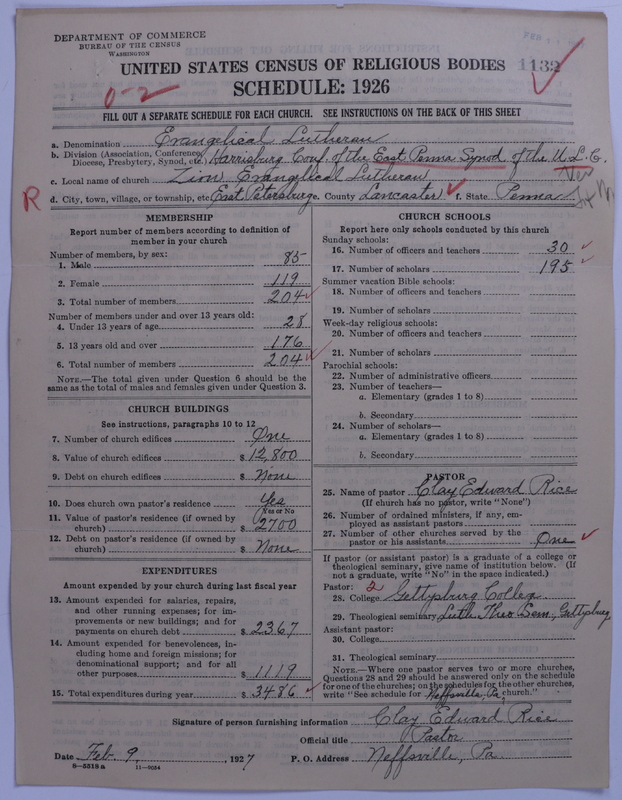 DEPARTMENT OF COMMERCE
BUREAU OF THE CENSUS
WASHINGTON
UNITED STATES CENSUS OF RELIGIOUS BODIES 1132
SCHEDULE: 1926
0-2
FILL OUT A SEPARATE SCHEDULE FOR EACH CHURCH. SEE INSTRUCTIONS ON THE BACK OF THIS SHEET
a. Denomination Evangelical Lutheran
b. Division (Association, Conference, Diocese, Presbytery, Synod, etc.) Harrisburg Conf. of the East Penna Synod of the U.L.C.
c. Local name of church Zion Evangelical Lutheran
R d. City, town, village, or township, etc. East Petersburg e. County Lancaster f. State Penna
MEMBERSHIP
Report number of members according to definition of member in your church
Number of members, by sex:
1. Male 85
2. Female 119
3. Total number of members 204
Number of members under and over 13 years old:
4. Under 13 years of age 28
5. 13 years old and over 176
6. Total number of members 204
NOTE.—The total given under Question 6 should be the same as the total of males and females given under Question 3.
CHURCH BUILDINGS
See instructions, paragraphs 10 to 12
7. Number of church edifices One
8. Value of church edifices $12,800
9. Debt on church edifices $None
10. Does church own pastor's residence Yes
Yes or No
11. Value of pastor's residence (if owned by church) $2700
12. Debt on pastor's residence (if owned by church) $None
EXPENDITURES
Amount expended by your church during last fiscal year
13. Amount expended for salaries, repairs, and other running expenses; for improvements or new buildings; and for payments on church debt $2367
14. Amount expended for benevolences, including home and foreign missions; for denominational support; and for all other purposes $1119
15. Total expenditures during year $3486
CHURCH SCHOOLS
Report here only schools conducted by this church
Sunday schools:
16. Number of officers and teachers 30
17. Number of scholars 195
Summer vacation Bible schools:
18. Number of officers and teachers
19. Number of scholars
Week-day religious schools:
20. Number of officers and teachers
21. Number of scholars
Parochial schools:
22. Number of administrative officers
23. Number of teachers—
a. Elementary (grades 1 to 8)
b. Secondary
24. Number of scholars—
a. Elementary (grades 1 to 8)
b. Secondary
PASTOR
25. Name of pastor Clay Edward Rice
(If church has no pastor, write "None")
26. Number of ordained ministers, if any, employed as assistant pastors
27. Number of other churches served by the pastor or his assistants One
If pastor (or assistant pastor) is a graduate of a college or theological seminary, give name of institution below. (If not a graduate, write "No" in the space indicated.)
Pastor: 2
28. College Gettysburg College
29. Theological seminary Luth. Theo. Sem., Gettysburg
Assistant pastor:
30. College
31. Theological seminary
NOTE.—Where one pastor serves two or more churches, Questions 28 and 29 should be answered only on the schedule for one of the churches; on the schedules for the other churches, write "See schedule for Neffsville, Pa. church."
Signature of person furnishing information Clay Edward Rice
Official title Pastor
Date Feb. 9, 1927 P. O. Address Neffsville, Pa
8-5318 a 11-9034